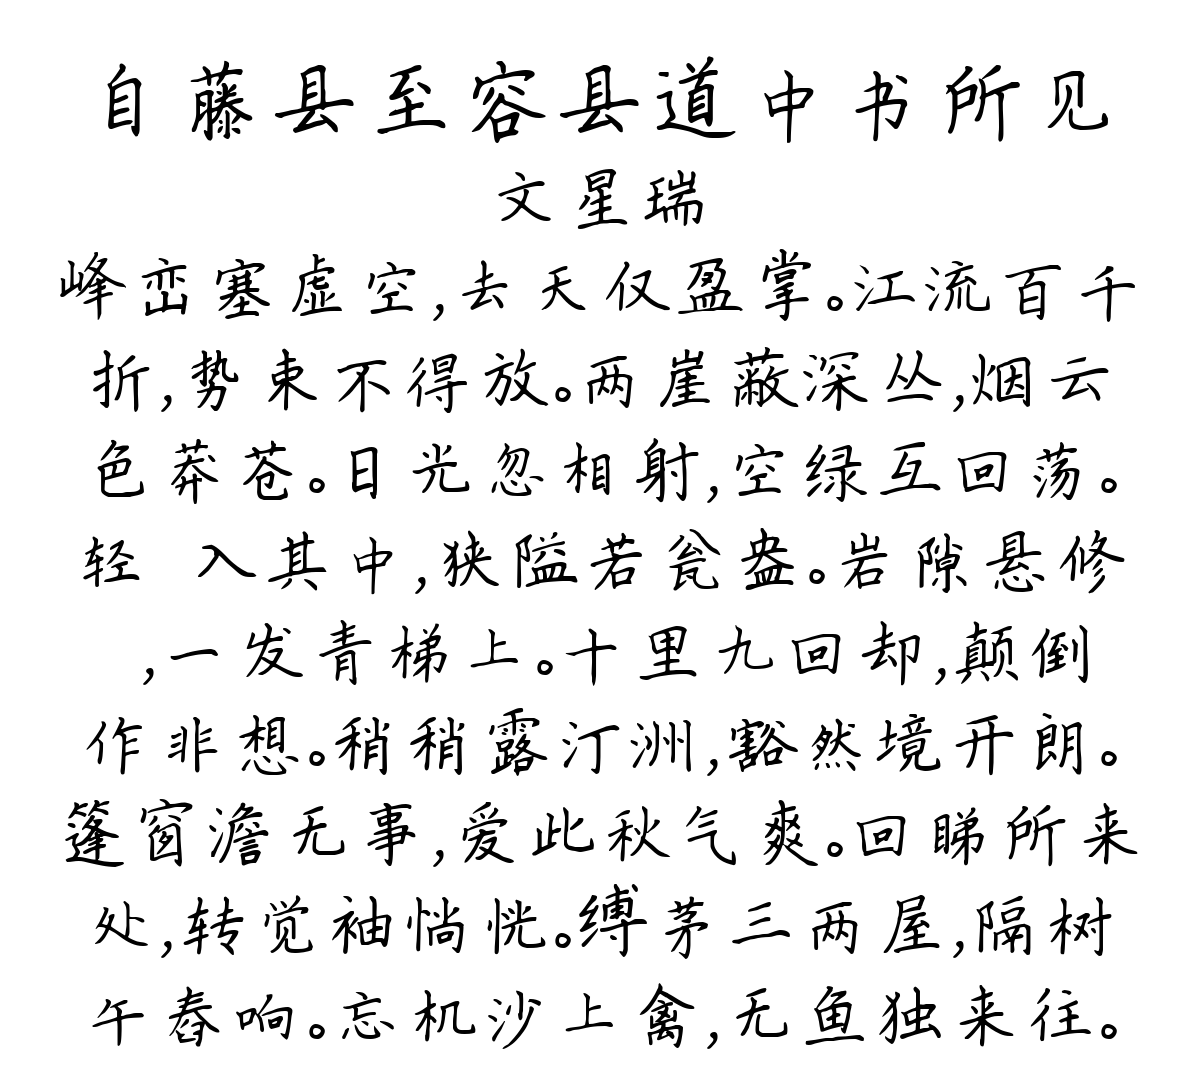 自藤县至容县道中书所见
文星瑞
峰峦塞虚空,去天仅盈掌。江流百千
折,势束不得放。两崖蔽深丛,烟云
色莽苍。日光忽相射,空绿互回荡。
轻 入其中,狭隘若瓮盎。岩隙悬修
,一发青梯上。十里九回却,颠倒
作非想。稍稍露汀洲,豁然境开朗。
篷窗澹无事,爱此秋气爽。回睇所来
处,转觉袖惝恍。缚茅三两屋,隔树
午舂响。忘机沙上禽,无鱼独来往。